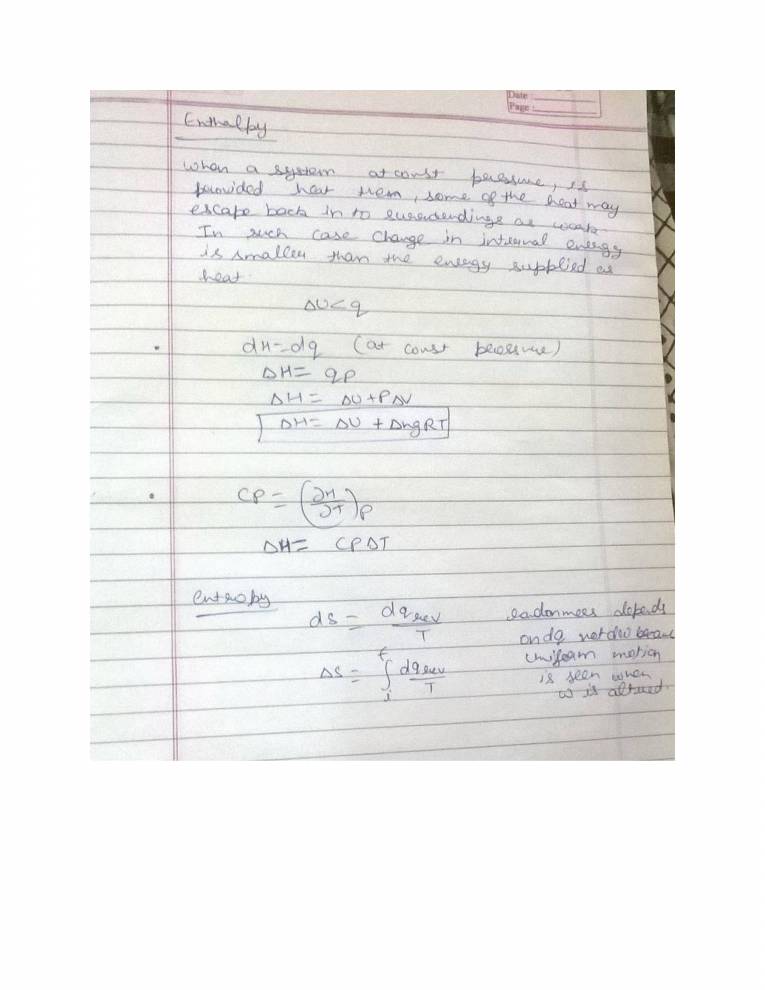 Date
Page :
Enthalpy
When a system at const pressure, is
provided heat then, some of the heat may
escape back in to surrounding as work
In such case change in internal energy
is smaller than the energy supplied as
heat.
ΔU<q
• dH=dq (at const pressure)
ΔH= qP
ΔH= ΔU+PΔV
ΔH= ΔU + ΔngRT
• CP = (∂H/∂T)P
ΔH= CPΔT
entropy
dS = dqrev/T
ΔS = ∫ᵢᶠ dqrev/T
randomness depends
on dq not dw because
uniform motion
is seen when
w is altered.